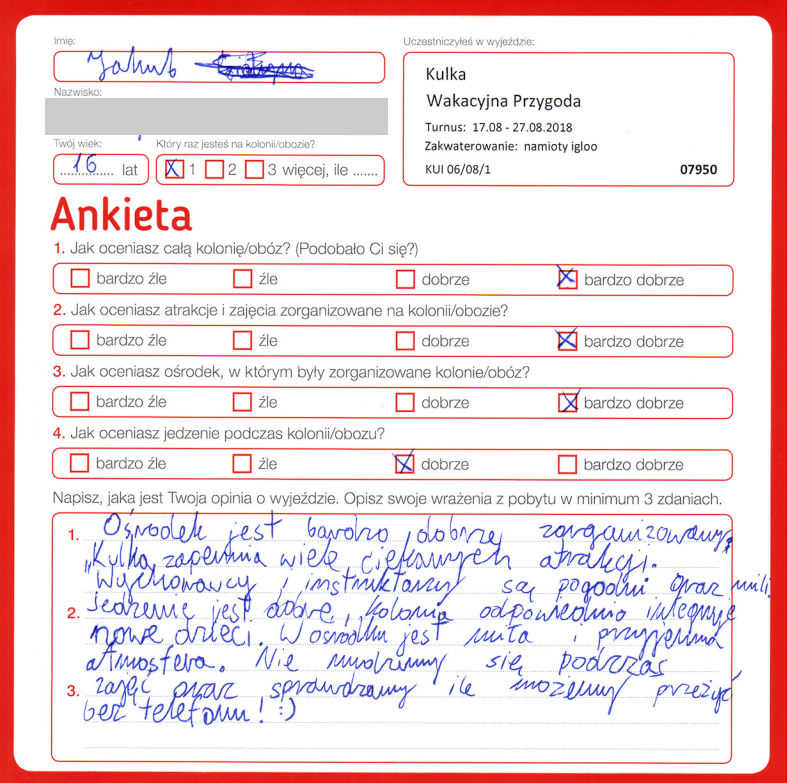 Imię:
Jakub
Nazwisko:
Twój wiek:
16 lat
Który raz jesteś na kolonii/obozie?
1 2 3 więcej, ile .......
Uczestniczyłeś w wyjeździe:
Kulka
Wakacyjna Przygoda
Turnus: 17.08 - 27.08.2018
Zakwaterowanie: namioty igloo
KUI 06/08/1 07950
Ankieta
1. Jak oceniasz całą kolonię/obóz? (Podobało Ci się?)
bardzo źle źle dobrze bardzo dobrze
2. Jak oceniasz atrakcje i zajęcia zorganizowane na kolonii/obozie?
bardzo źle źle dobrze bardzo dobrze
3. Jak oceniasz ośrodek, w którym były zorganizowane kolonie/obóz?
bardzo źle źle dobrze bardzo dobrze
4. Jak oceniasz jedzenie podczas kolonii/obozu?
bardzo źle źle dobrze bardzo dobrze
Napisz, jaka jest Twoja opinia o wyjeździe. Opisz swoje wrażenia z pobytu w minimum 3 zdaniach.
1. Ośrodek jest bardzo dobrze zorganizowany,
"Kulka zapewnia wiele ciekawych atrakcji.
Wychowawcy i instruktorzy są pogodni oraz mili.
2. Jedzenie jest dobre, kolonia odpowiednio integruje
nowe dzieci. W ośrodku jest miła i przyjemna
atmosfera. Nie nudzimy się podczas
3. zajęć oraz sprawdzamy ile możemy przeżyć
bez telefonu! :)